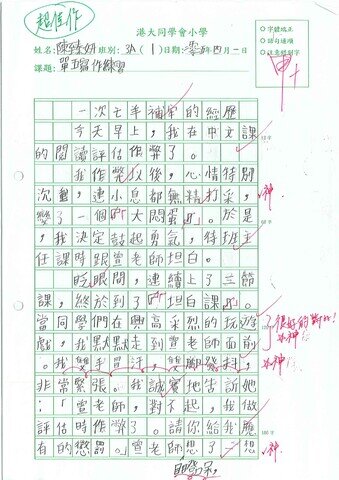 超佳作
港大同學會小學
姓名:陳臻妍 班別:3A(1)日期:零五年四月一日
課題:單五寫作練習
○字體端正
○語句通順
○注意錯別字
甲+
一次亡羊補牢的經歷
今天早上,我在中文課
的閱讀評估作弊了。
我作弊以後,心情特別
沉重,連小息都無精打采,
變了一個『大悶蛋』。於是
,我決定鼓起勇氣,待班主
任課時跟曾老師坦白。
眨眼間,連續上了三節
課,終於到了『坦白課』。
當同學們在興高采烈的玩遊
戲,我默默走到曾老師面前
。我雙手冒汗,雙腳發抖,
非常緊張。我誠實地告訴她
:「曾老師,對不起,我做
評估時作弊了。請你給我應
有的懲罰。」曾老師想了想